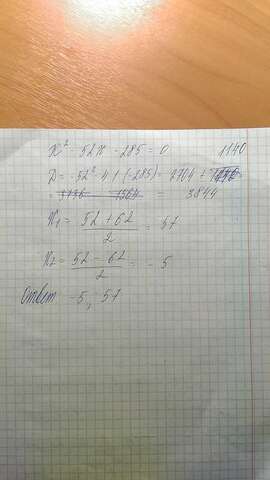 x² - 52x - 285 = 0 1140
D = -52² - 4·1·(-285) = 2704 +
= = 3844
x₁ = (52 + 62)/2 = 57
x₂ = (52 - 62)/2 = -5
Ответ -5; 57